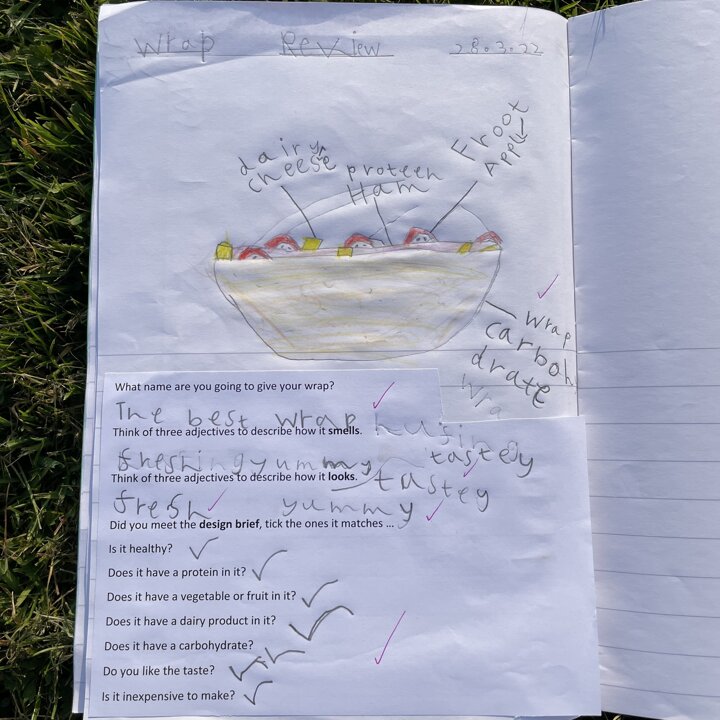 Wrap Review 28.3.22
dairy
cheese
proteen
Ham
Froot
Apple
Wrap
carboh
drate
Wra
What name are you going to give your wrap?
The best wrap
Think of three adjectives to describe how it smells.
yummy tastey
Think of three adjectives to describe how it looks.
fresh yummy tastey
Did you meet the design brief, tick the ones it matches ...
Is it healthy? ✓
Does it have a protein in it? ✓
Does it have a vegetable or fruit in it? ✓
Does it have a dairy product in it? ✓
Does it have a carbohydrate? ✓
Do you like the taste? ✓
Is it inexpensive to make? ✓